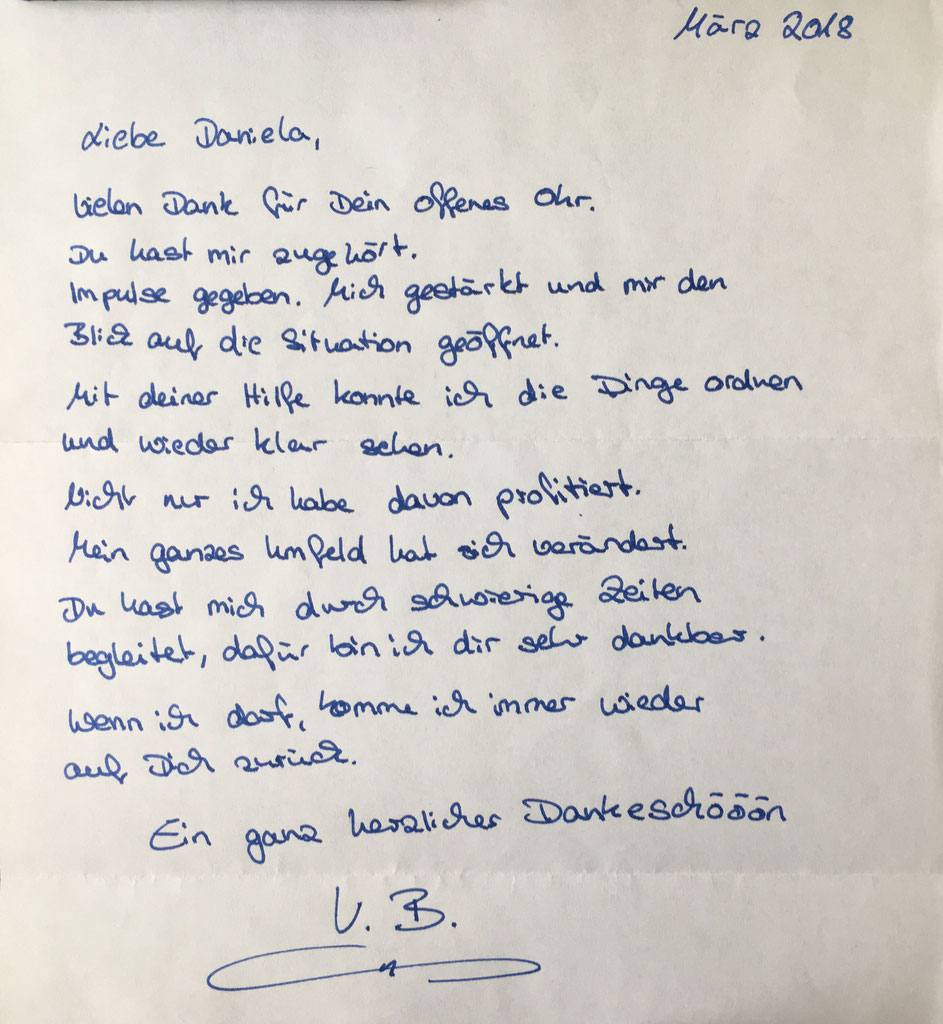 März 2018
Liebe Daniela,
Vielen Dank für Dein offenes Ohr.
Du hast mir zugehört.
Impulse gegeben. Mich gestärkt und mir den
Blick auf die Situation geöffnet.
Mit deiner Hilfe konnte ich die Dinge ordnen
und wieder klar sehen.
Nicht nur ich habe davon profitiert.
Mein ganzes Umfeld hat sich verändert.
Du hast mich durch schwierige Zeiten
begleitet, dafür bin ich dir sehr dankbar.
Wenn ich darf, komme ich immer wieder
auf Dich zurück.
Ein ganz herzlicher Dankeschööön
V. B.